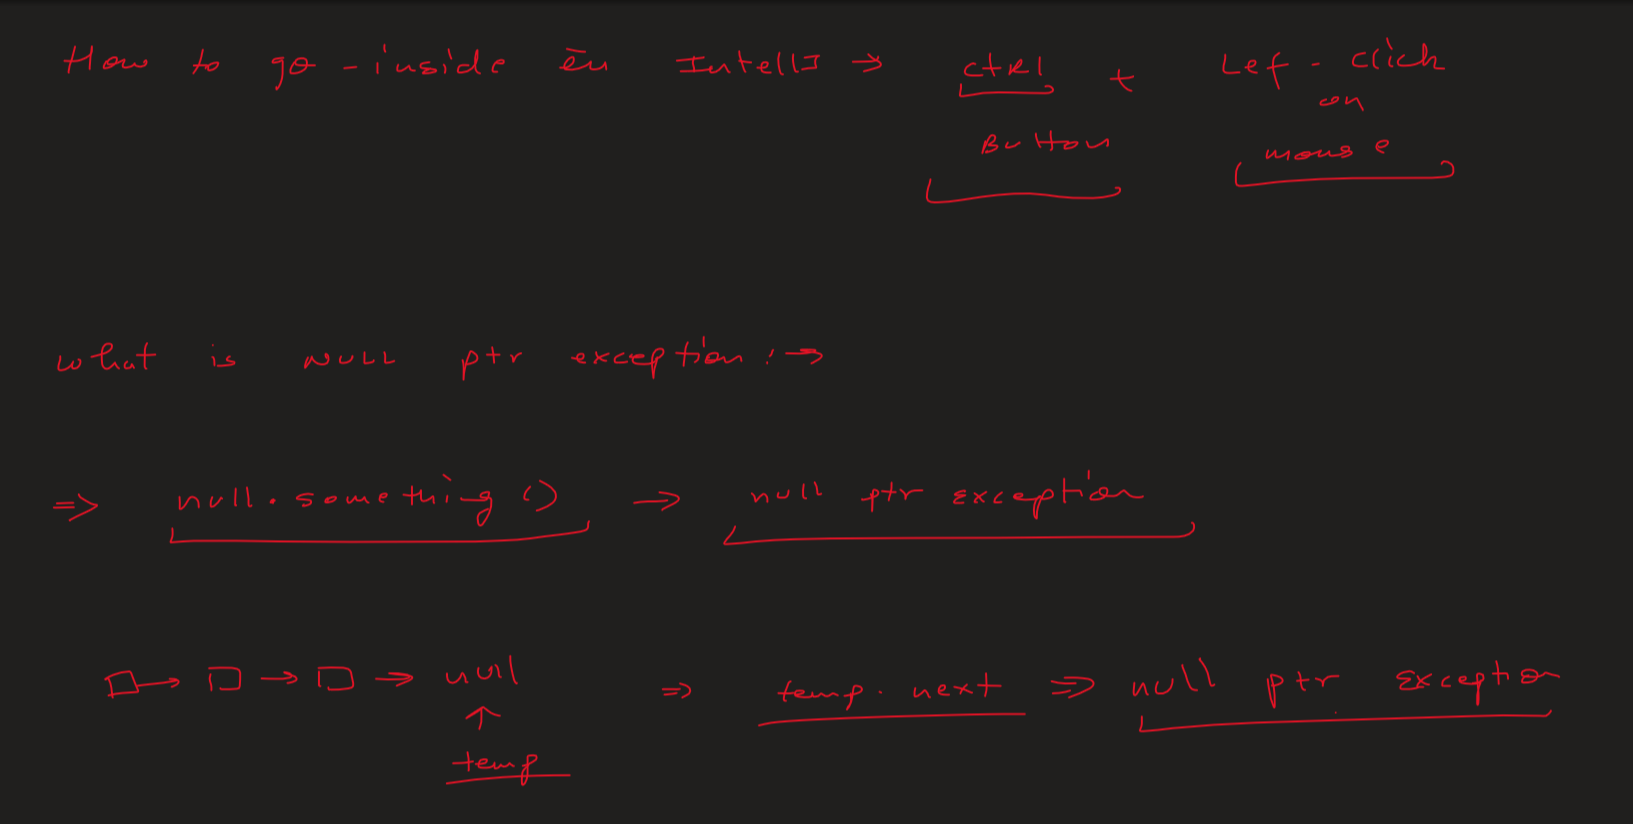 How to go-inside in IntellJ → ctrl + Lef-click
on
Button mouse
what is NULL ptr exception :→
=> null.something() → null ptr exception
□→ □ → □ → null => temp.next => null ptr exception
↑
temp